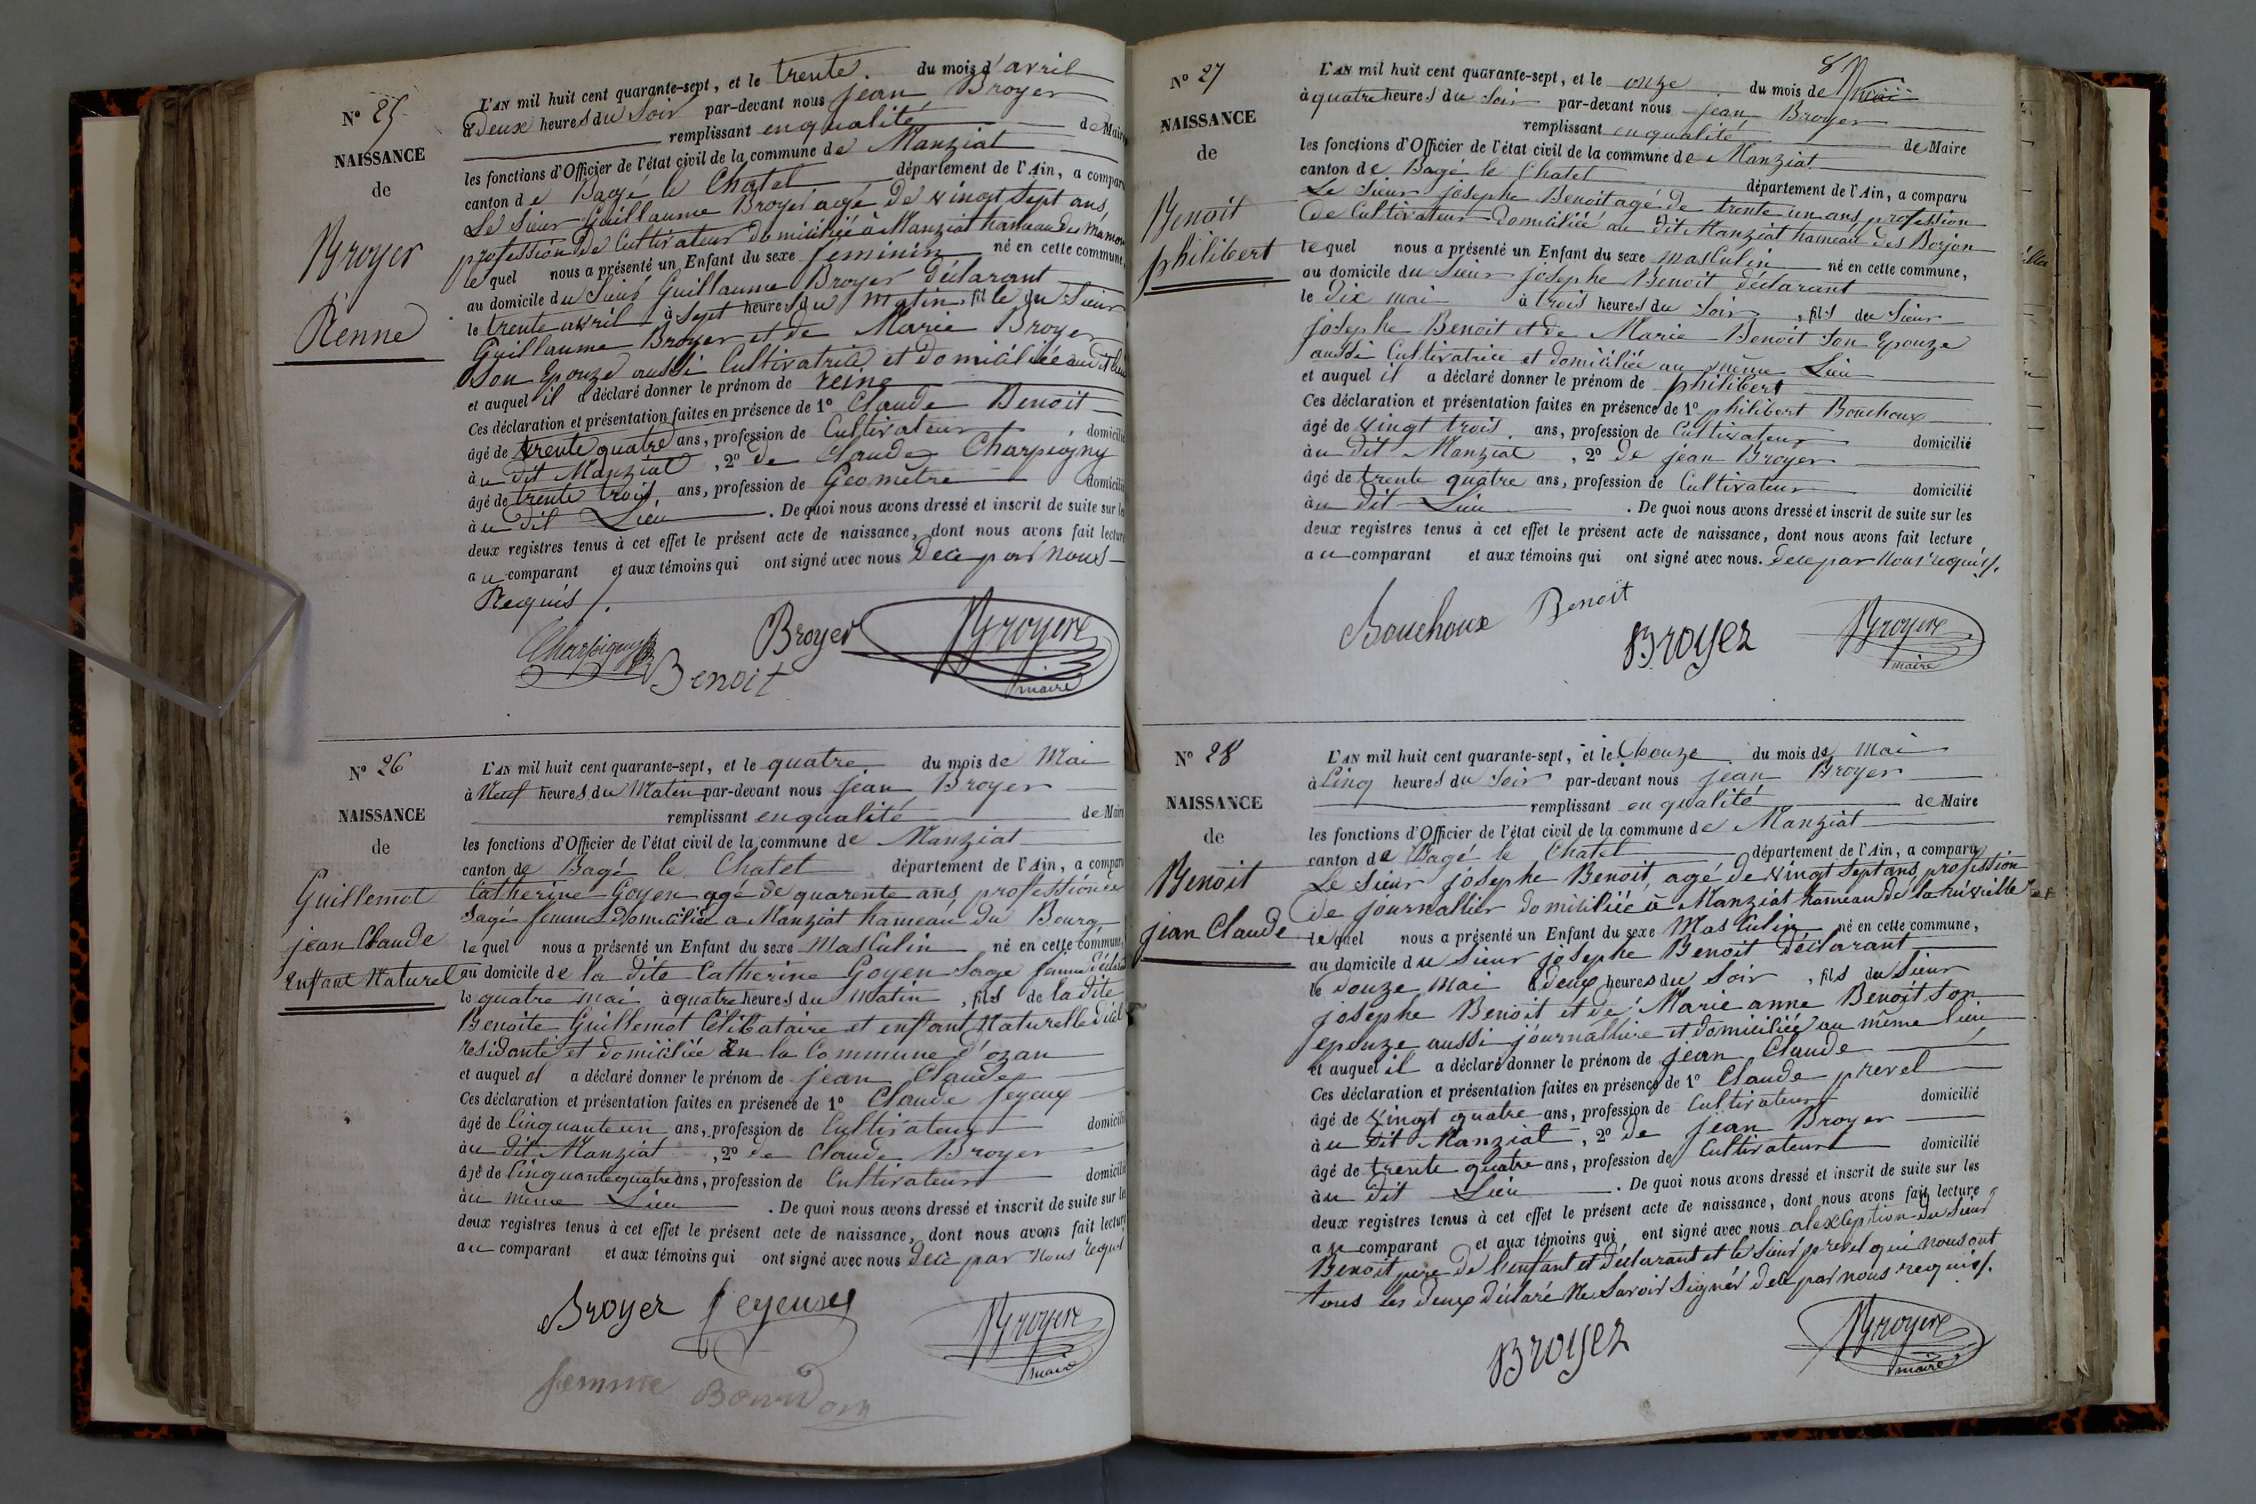 N° 25
NAISSANCE
de
Broyer
Renne
L'AN mil huit cent quarante-sept, et le trente. du mois d'avril
à Deux heures du Soir par-devant nous jean Broyer
remplissant en qualité de Maire
les fonctions d'Officier de l'état civil de la commune de Manziat
canton de Bagé le Chatel département de l'Ain, a comparu
Le Sieur Guillaume Broyer agé de vingt sept ans
profession De Cultivateur domiciliié à Manziat hameau des Mamon
lequel nous a présenté un Enfant du sexe feminin né en cette commune,
au domicile du Sieur Guillaume Broyer déclarant
le trente avril à sept heures du matin, fille du Sieur
Guillaume Broyer et de Marie Broyer
Son Epouze aussi Cultivatrice et domiciliée au dit lieu
et auquel il a déclaré donner le prénom de reine
Ces déclaration et présentation faites en présence de 1° Claude Benoit
âgé de trente quatre ans, profession de Cultivateur domicilié
à u dit Manziat, 2° de Claude Charpigny
âgé de trente trois, ans, profession de Geomètre domicilié
à u dit Lieu. De quoi nous avons dressé et inscrit de suite sur les
deux registres tenus à cet effet le présent acte de naissance, dont nous avons fait lecture
au comparant et aux témoins qui ont signé avec nous Dece par nous
Requis /.
Charpigny
Benoit
Broyer
Broyere
maire
N° 26
NAISSANCE
de
Guillemot
jean Claude
Enfant Naturel
L'AN mil huit cent quarante-sept, et le quatre du mois de Mai
à Neuf heures du Matin par-devant nous jean Broyer
remplissant en qualité de Maire
les fonctions d'Officier de l'état civil de la commune de Manziat
canton de Bagé le Chatel département de l'Ain, a comparu
Catherine Goyen agé de quarente ans, profession de
Sage femme Domiciliée a Manziat hameau du Bourg
lequel nous a présenté un Enfant du sexe Masculin né en cette commune,
au domicile de la dite Catherine Goyen Sage femme
le quatre mai à quatre heures du matin, fils de la dite
Benoite Guillemot Célibataire et enfant Naturelle
residante et domiciliée en la Commune d'ozan
et auquel el a déclaré donner le prénom de jean Claude
Ces déclaration et présentation faites en présence de 1° Claude feyeux
âgé de Cinquante un ans, profession de Cultivateur domicilié
à u dit Manziat, 2° de Claude Broyer
âgé de Cinquante quatre ans, profession de Cultivateur domicilié
à u même Lieu. De quoi nous avons dressé et inscrit de suite sur les
deux registres tenus à cet effet le présent acte de naissance, dont nous avons fait lecture
au comparant et aux témoins qui ont signé avec nous dece par nous requis
Broyer feyeux
Broyere
maire
femme Bourdon
N° 27
NAISSANCE
de
Benoit
philibert
8
L'AN mil huit cent quarante-sept, et le onze du mois de Mai
à quatre heures du Soir par-devant nous jean Broyer
remplissant en qualité de Maire
les fonctions d'Officier de l'état civil de la commune de Manziat
canton de Bagé le Chatel département de l'Ain, a comparu
Le Sieur josephe Benoit agé de trente un ans, profession
de Cultivateur domiciliié au dit Manziat hameau des Borjon
lequel nous a présenté un Enfant du sexe masculin né en cette commune,
au domicile du Sieur josephe Benoit déclarant
le dix mai à trois heures du Soir, fils du Sieur
josephe Benoit et de Marie Benoit Son Epouze
aussi Cultivatrice et domiciliée au même Lieu
et auquel il a déclaré donner le prénom de philibert
Ces déclaration et présentation faites en présence de 1° philibert Bouchoux
âgé de vingt trois. ans, profession de Cultivateur domicilié
à u dit Manziat, 2° de jean Broyer
âgé de trente quatre ans, profession de Cultivateur domicilié
à u dit Lieu. De quoi nous avons dressé et inscrit de suite sur les
deux registres tenus à cet effet le présent acte de naissance, dont nous avons fait lecture
au comparant et aux témoins qui ont signé avec nous. Dece par nous requis/.
Bouchoux Benoit
Broyer
Broyere
maire
N° 28
NAISSANCE
de
Benoit
jean Claude
L'AN mil huit cent quarante-sept, et le Douze du mois de Mai
à Cinq heures du Soir par-devant nous jean Broyer
remplissant en qualité de Maire
les fonctions d'Officier de l'état civil de la commune de Manziat
canton de Bagé le Chatel département de l'Ain, a comparu
Le Sieur josephe Benoit, agé de vingt Sept ans, profession
de journallier domiciliié à Manziat hameau de la
lequel nous a présenté un Enfant du sexe Masculin né en cette commune,
au domicile du Sieur josephe Benoit déclarant
le Douze Mai à deux heures du Soir, fils du Sieur
josephe Benoit et de Marie anne Benoit Son
epouze aussi journallière et domiciliée au même lieu
et auquel il a déclaré donner le prénom de jean Claude
Ces déclaration et présentation faites en présence de 1° Claude prevel
âgé de vingt quatre ans, profession de Cultivateur domicilié
à u dit Manziat, 2° de jean Broyer
âgé de trente quatre ans, profession de Cultivateur domicilié
à u dit Lieu. De quoi nous avons dressé et inscrit de suite sur les
deux registres tenus à cet effet le présent acte de naissance, dont nous avons fait lecture
au comparant et aux témoins qui ont signé avec nous alexception du Sieur
Benoit père de l'enfant et déclarant et le Sieur prevel qui nous ont
tous les deux déclaré Ne Savoir Signér dece par nous requis/.
Broyer
Broyere
maire